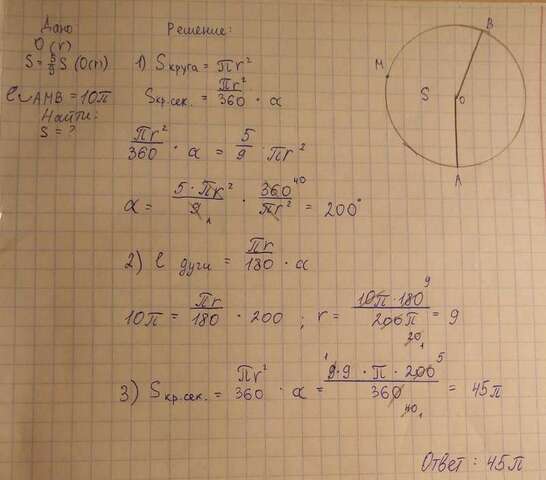 Дано
O(r)
S = 5/9 S (O(r))
l ◡AMB = 10π
Найти:
S = ?
Решение:
1) S круга = πr²
S кр.сек. = πr²/360 · α
πr²/360 · α = 5/9 · πr²
α = 5·πr²/9 · 360/πr² = 200°
40
1
2) l дуги = πr/180 · α
10π = πr/180 · 200 ; r = 10π·180/200π = 9
9
20
1
3) S кр.сек. = πr²/360 · α = 9·9·π·200/360 = 45π
1
5
40
1
Ответ: 45π
B
M
S
O
A